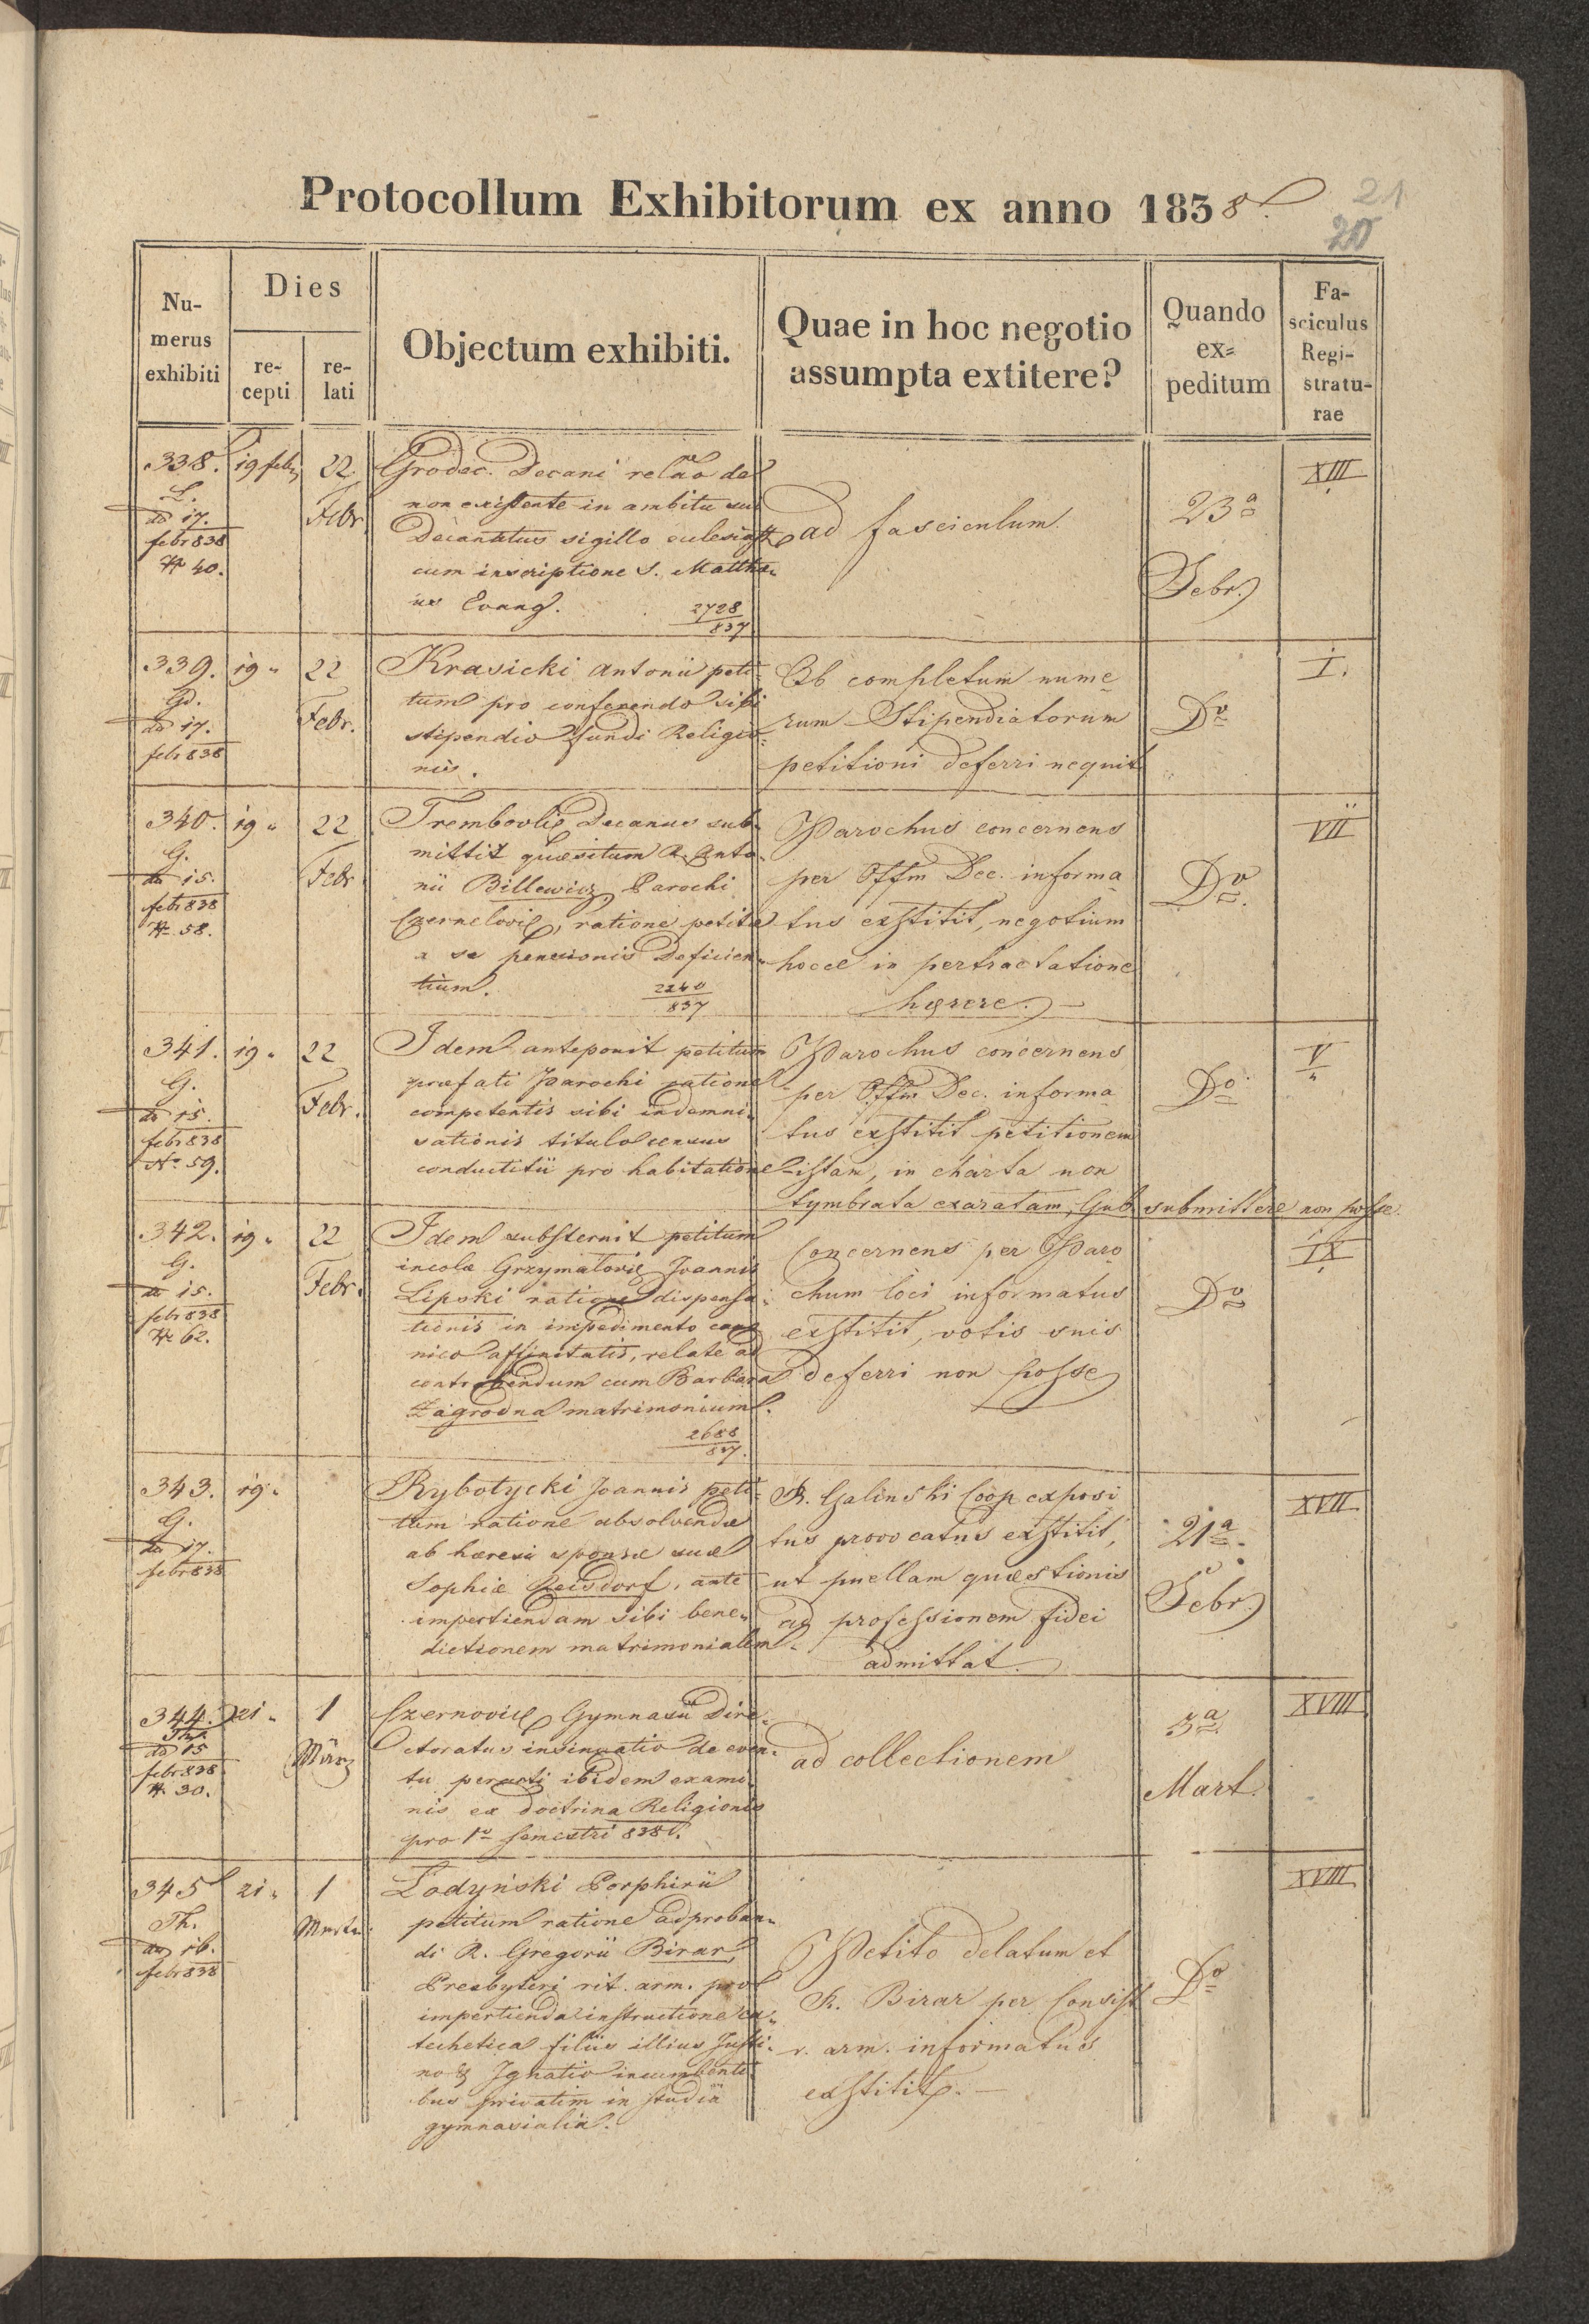 Protocollum Exhibitorum ex anno 1838.
21
20
Numerus exhibiti
Dies
recepti
relati
Objectum exhibiti.
Quae in hoc negotio assumpta extitere?
Quando expeditum
Fasciculus Registraturae
338.
L.
dd 17.
febr 838
N 40.
19 febr
22
Febr.
Grodec. Decani relão de
non existente in ambitu sui
Decanatus sigillo eclesiast
cum inscriptione S. Matthæ
us Evang.
2728
837
ad fasciculum.
23a
Febr.
XIII
339.
Gd.
dd 17.
febr 838
19 "
22
Febr.
Krasicki Antonii peti-
tum pro conferendo sibi
stipendio fundi Religio-
nis.
Ob completum nume
rum Stipendiatorum
petitioni deferri nequit
Do
I.
340.
G.
dd 15.
febr 838
N 58.
19 "
22
Febr
Trembovlæ Decanus sub-
mittit quæsitum R. Anto-
nii Billewicz, Parochi
Czerneloviæ, ratione petitæ
a se pensionis Deficien-
tium.
2240
837
Parochus concernens
per Offm Dec. informa
tus exstitit, negotium
hocce in pertractatione
hærere.
Do.
VII
341.
G.
dd 15.
febr 838
No 59.
19 "
22
Febr.
Idem anteponit petitum
præfati Parochi ratione
competentis sibi indemni-
sationis titulo census
conductitii pro habitatione
Parochus concernens
per Offm Dec. informa
tus exstitit petitionem
istam, in charta non
tymbrata exaratam, Gub. submittere non posse.
Do
V
342.
G.
dd 15.
febr 838
N 62.
19 "
22
Febr.
Idem substernit petitum
incolæ Grzymałoviæ Joannis
Lipski ratione dispensa-
tionis in impedimento cano
nico affinitatis, relate ad
contrahendum cum Barbara
Zagrodna matrimonium.
2688
837.
Concernens per Paro
chum loci informatus
exstitit, votis suis
deferri non posse
Do
IX
343.
G.
dd 17.
febr 838
19 "
Rybotycki Joannis peti-
tum ratione absolvendæ
ab hæresi sponsæ suæ
Sophiæ Reisdorf, ante
impertiendam sibi bene-
dictionem matrimonialem.
R. Galinski Coop exposi
tus provocatus exstitit,
ut puellam quæstionis
ad professionem fidei
admittat.
21a
Febr.
XVII
344.
Th.
dd 15
febr 838
N. 30.
21 "
1
März
Czernoviæ Gymnasii Dire-
ctoratus insinuatio de even-
tu peracti ibidem exami-
nis ex doctrina Religionis
pro 1o semestri 838.
ad collectionem
3a
Mart.
XVIII
345
Th.
dd 16.
febr 838
21 "
1
Martii
Łodyński Porphirii
petitum ratione adproban-
di R. Gregorii Birar,
Presbyteri rit. arm. pro
impertienda instructione ca-
techetica filiis illius Justi-
no & Ignatio incumbenti-
bus privatim in studiis
gymnasialib.
Petito delatum et
R. Birar per Consist
r. arm. informatus
exstitit.
Do
XVIII